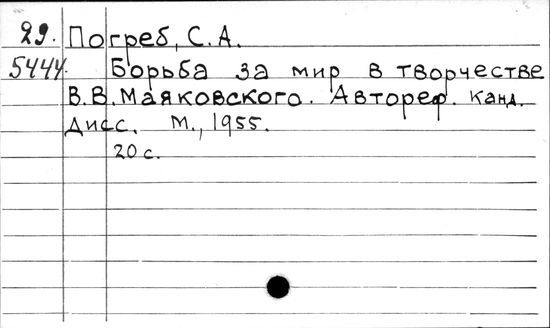 29. Погреб, С.А.
5444. Борьба за мир в творчестве
В.В.Маяковского. Автореф. канд.
дисс. М., 1955.
20 с.